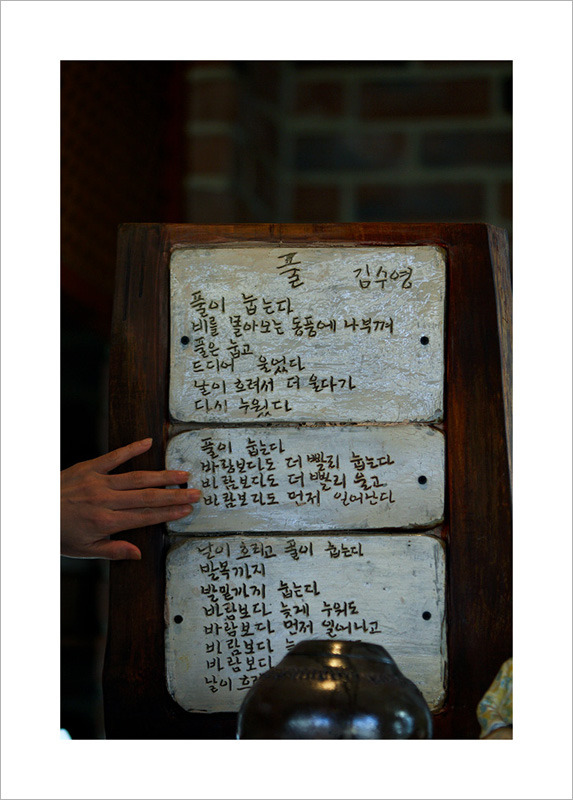 풀
김수영
풀이 눕는다
비를 몰아오는 동풍에 나부껴
풀은 눕고
드디어 울었다
날이 흐려서 더 울다가
다시 누웠다
풀이 눕는다
바람보다도 더 빨리 눕는다
바람보다도 더 빨리 울고
바람보다도 먼저 일어난다
날이 흐리고 풀이 눕는다
발목까지
발밑까지 눕는다
바람보다 늦게 누워도
바람보다 먼저 일어나고
바람보다
바람보다
날이